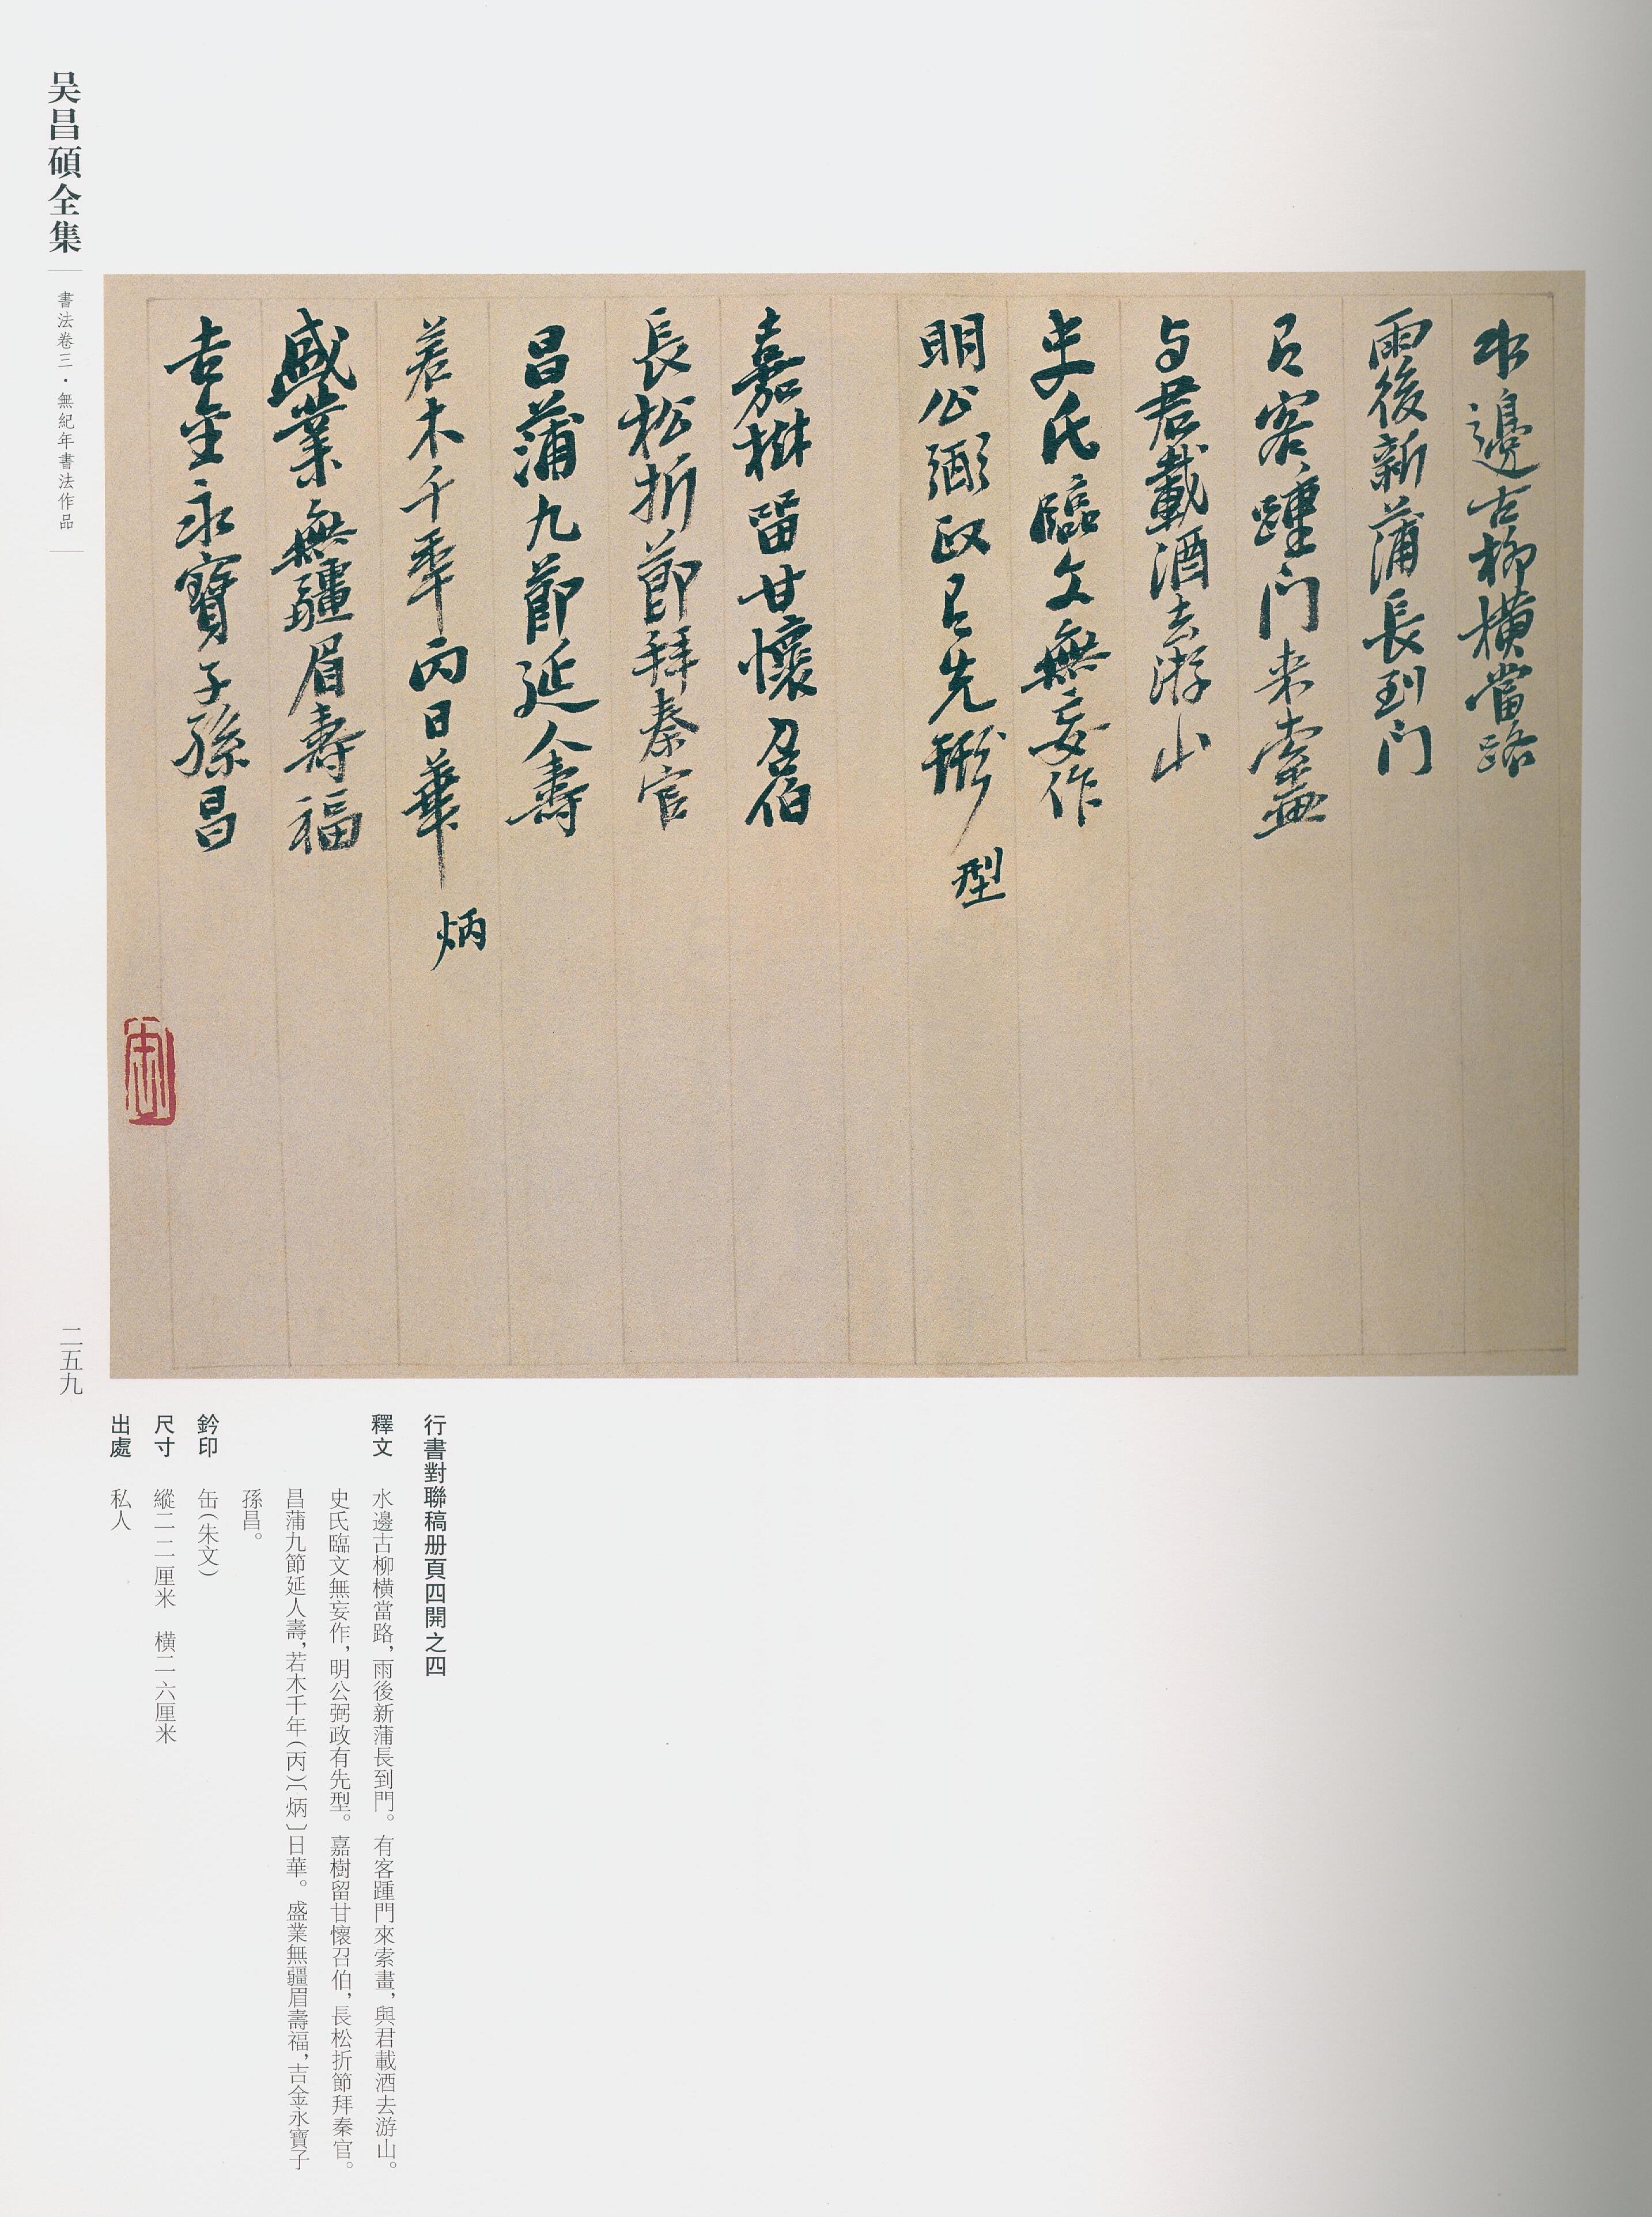 水邊古柳橫當路
雨後新蒲長到门
有客踵门来索畫
与君載酒去游山
史氏臨文無妄作
明公弼政有先型
嘉樹留甘懷召伯
長松折節拜秦官
昌蒲九節延人壽
若木千年丙日華
炳
盛業無疆眉壽福
吉金永寶子孫昌
缶
行書對聯稿册頁四開之四
釋文 水邊古柳橫當路，雨後新蒲長到門。有客踵門來索畫，與君載酒去游山。
史氏臨文無妄作，明公弼政有先型。嘉樹留甘懷召伯，長松折節拜秦官。
昌蒲九節延人壽，若木千年（丙）〔炳〕日華。盛業無疆眉壽福，吉金永寶子
孫昌。
鈐印 缶（朱文）
尺寸 縱二二厘米 橫二六厘米
出處 私人
吴昌碩全集
書法卷三·無紀年書法作品
二五九